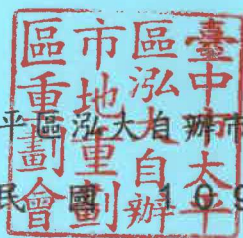 臺中市太平
區泓大自辦
市地重劃
區重劃會
平區泓大自辦市
民國109